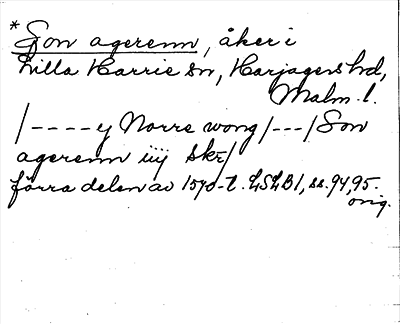 * Son agerenn, åker i
Lilla Harrie sn, Harjagers hd,
Malm. l.
/----y Norre wong/---/Son
agerenn iiij Skr/
förra delen av 1570-t. LSLB1, ss. 94, 95.
orig.